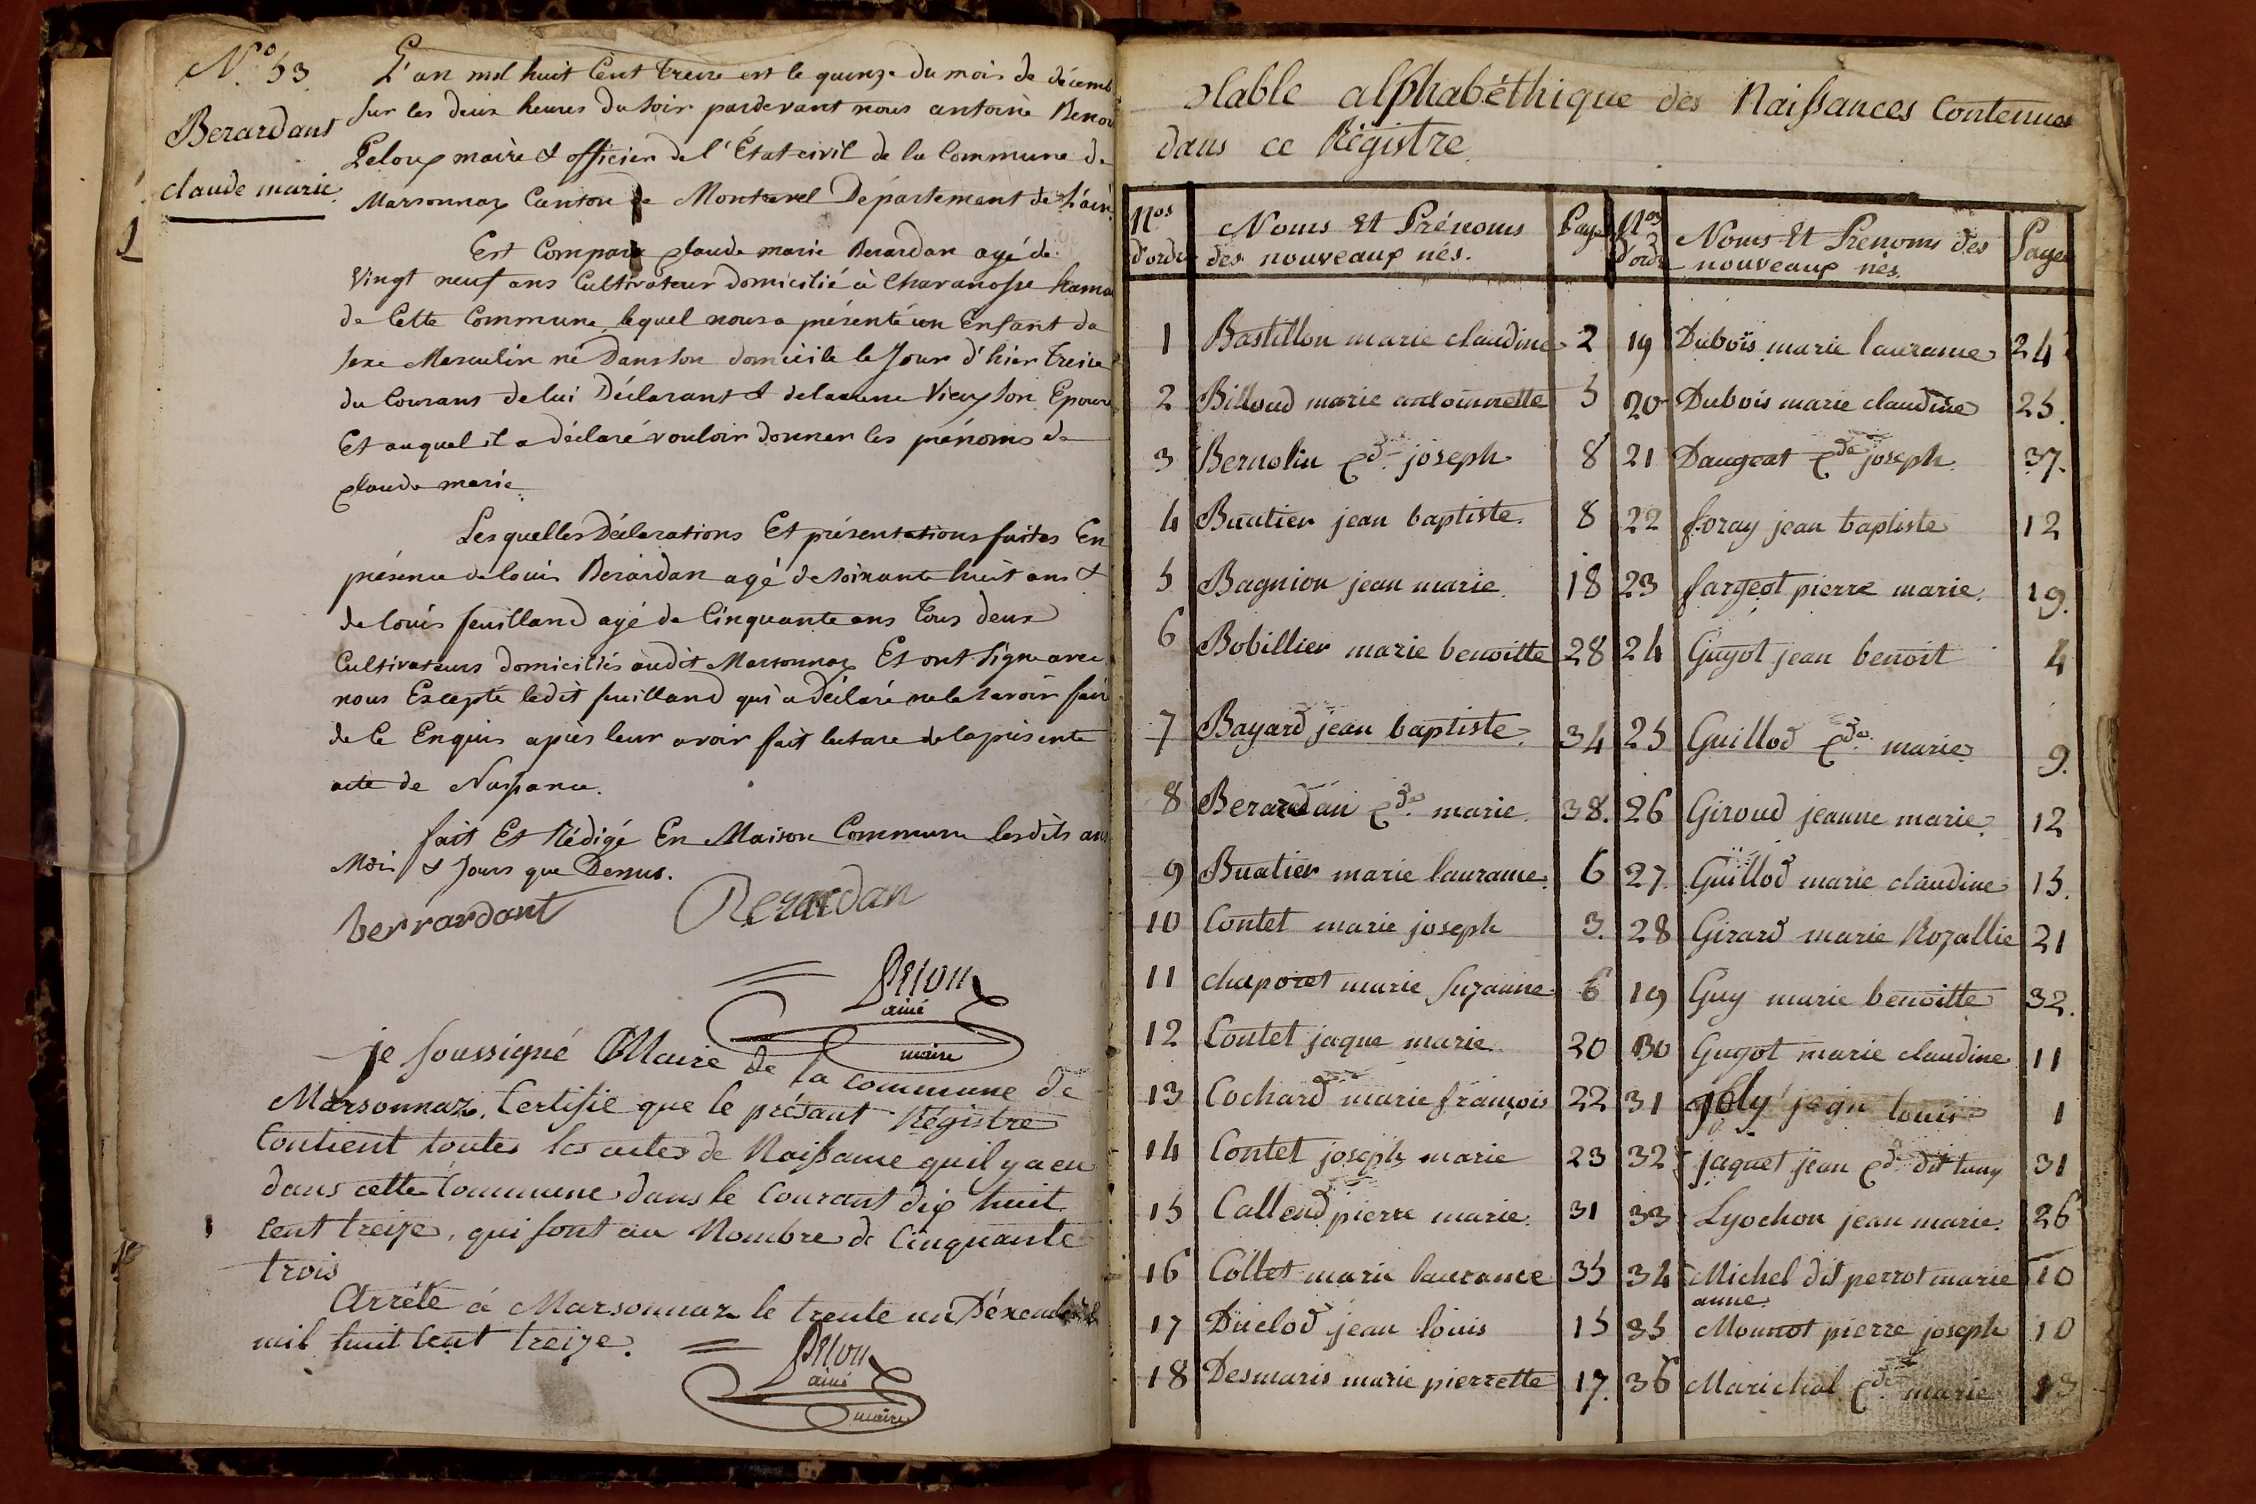 N.° 53
Berardant
claude marie.
1
L'an mil huit Cent Treize est le quinze du mois de décemb
Sur les deux heures du Soir pardevant nous antoine Benoi
Peloux maire & officier de l'État civil de la Commune de
Marsonnax Canton de Montrevel Département de L'ain.
Est Comparu Claude marie Berardan agé de
Vingt neuf ans Cultivateur domicilié à Chavanosse hama
de Cette Commune, lequel nous a présenté un Enfant du
Sexe Masculin né Dans son domicile le Jour d'hier Treize
du Courant de lui Déclarant & de Vieux Son Epouse
Et auquel il a déclaré vouloir donner les prénoms de
Claude marie.
Lesquelles Déclarations Et présentations faites En
présence de louis Berardan agé de Soixante huit ans &
de louis feuilland agé de Cinquante ans Tous deux
Cultivateurs domiciliés audit Marsonnax Et ont Signe avec
nous Excepté ledit feuilland qui a Déclaré ne le Savoir fair
de Ce Enquis après leur avoir fait lecture de la présente
acte de Naissance.
fait Et Rédigé En Maison Commune lesdits an
Mois & Jours que Dessus.
berrardant Berardan
ainé
maire
je soussigné Maire de la commune de
Marsonnaz. Certifie que le présant Régistre
Contient toutes les actes de Naissance quil y a eu
dans cette Commune dans le Courant dix huit
Cent treize, qui sont au Nombre de Cinquante
trois
Arrêté à Marsonnaz le trente un Décembre
mil huit Cent treize.
ainé
maire
Table alphabéthique des Naissances Contenues
dans ce Régistre
Nos d'ordre Noms Et Prénoms des nouveaux nés. Page Nos d'ordre Noms Et Prénoms des nouveaux nés. Page
1 Bastillon marie claudine 2 19 Dubois marie laurance 24
2 Billoud marie antoinette 5 20 Dubois marie claudine 25.
3 Bernolin Cde joseph 8 21 Daugeat Cde joseph 37.
4 Buatier jean baptiste. 8 22 foray jean baptiste 12
5 Bagnion jean marie. 18 23 fargeot pierre marie. 19.
6 Bobillier marie benoitte 28 24 Guyot jean benoit 4
7 Bayard jean baptiste. 34 25 Guillod Cde marie 9.
8 Berardan Cde marie. 38. 26 Giroud jeanne marie. 12
9 Buatier marie laurance. 6 27. Guillod marie claudine 15.
10 Contet marie joseph 3. 28 Girard marie Rozallie 21
11 chaporet marie Suzanne 6 19 Guy marie benoitte 32.
12 Contet jaque marie. 20 30 Guyot marie claudine 11
13 Cochard marie françois 22 31 joly jean louis 1
14 Contet joseph marie 23 32 jaquet jean Cde dit tuny 31
15 Calland pierre marie. 31 33 Lyochon jean marie. 26
16 Collet marie laurance 35 34 Michel dit perrot marie anne. 10
17 Duclod jean louis 15 35 Monnot pierre joseph 10
18 Desmaris marie pierrette 17. 36 Marichal Cde marie 13